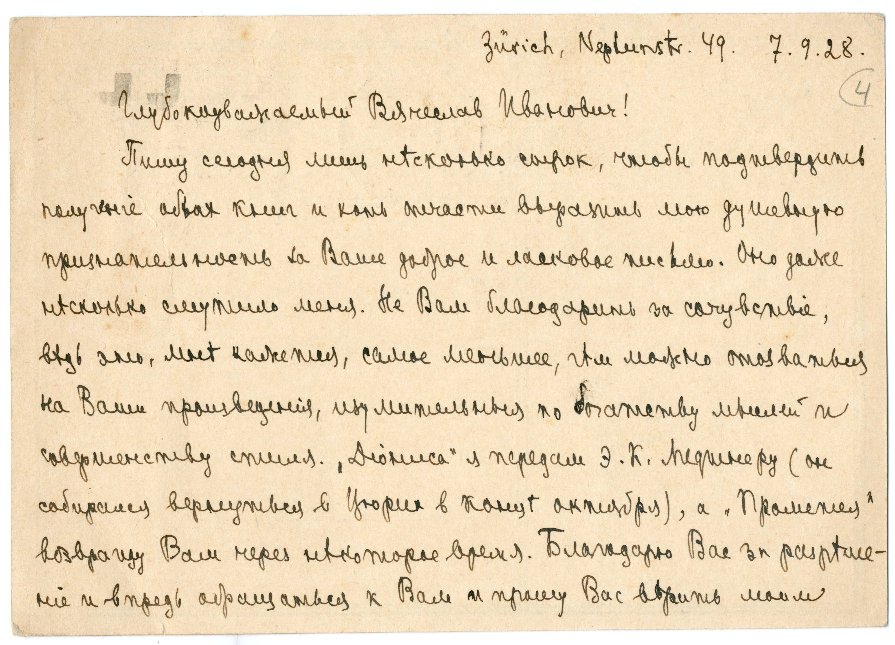 Zürich, Neptunstr. 49. 7.9.28.
4
Глубокоуважаемый Вячеслав Иванович!
Пишу сегодня лишь нѣсколько строк, чтобы подтвердить
полученіе обѣих книг и хоть отчасти выразить мою душевную
признательность за Ваше доброе и ласковое письмо. Оно даже
нѣсколько смутило меня. Не Вам благодарить за сочувствіе,
вѣдь это, мнѣ кажется, самое меньшее, чѣм можно отозваться
на Ваши произведенія, изумительныя по богатству мыслей и
совершенству стиля. „Діониса" я передам Э. К. Метнеру (он
собирался вернуться в Цюрих в концѣ октября), а „Прометея"
возвращу Вам через нѣкоторое время. Благодарю Вас за разрѣше-
ніе и впредь обращаться к Вам и прошу Вас вѣрить моим